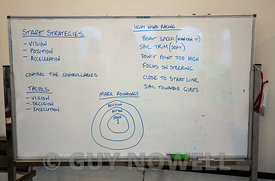 START STRATEGIES
- VISION
- POSITION
- ACCELERATION
CONTROL THE CONTROLLABLES
TACTICS
- VISION
- DECISION
- EXECUTION
LIGHT WIND RACING
BOAT SPEED (MAINTAIN IT)
SAIL TRIM (SOFT)
DON'T POINT TOO HIGH
FOCUS ON STEERING
CLOSE TO START LINE
SAIL TOWARDS GUSTS
MARK ROUNDINGS
DECISION
© GUY NOWELL